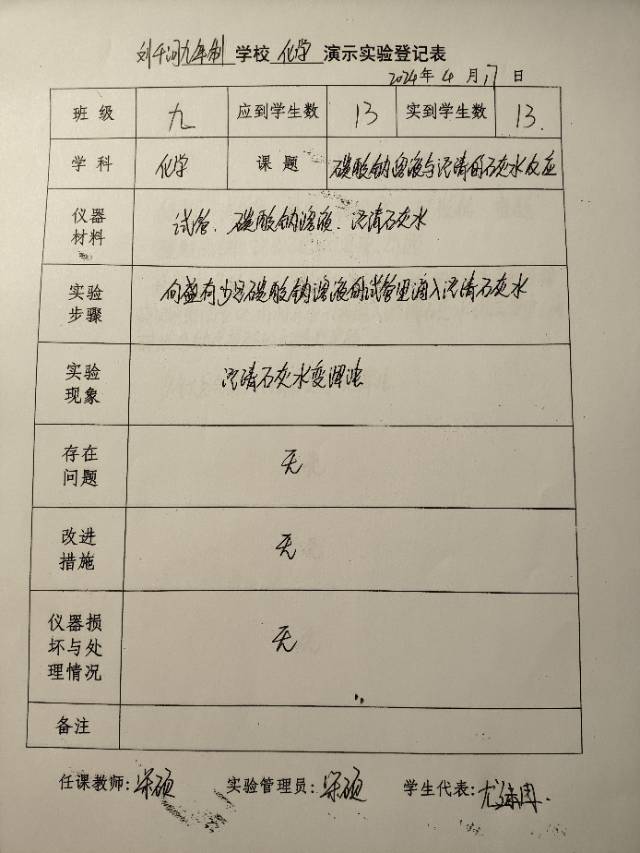 刘千河九年制 学校 化学 演示实验登记表
2024年 4 月 17 日
班 级 九 应到学生数 13 实到学生数 13.
学 科 化学 课 题 碳酸钠溶液与澄清的石灰水反应
仪器
材料
试管、碳酸钠溶液、澄清石灰水
实验
步骤
向盛有少量碳酸钠溶液的试管里滴入澄清石灰水
实验
现象
澄清石灰水变浑浊
存在
问题
无
改进
措施
无
仪器损
坏与处
理情况
无
备注
任课教师: 实验管理员: 学生代表: